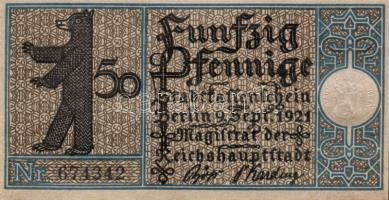 Funfzig
50 Pfennige
Stadtkassenschein
Berlin 9. Sept. 1921
Magistrat der
Reichshauptstadt
Nr. 674342
Böß